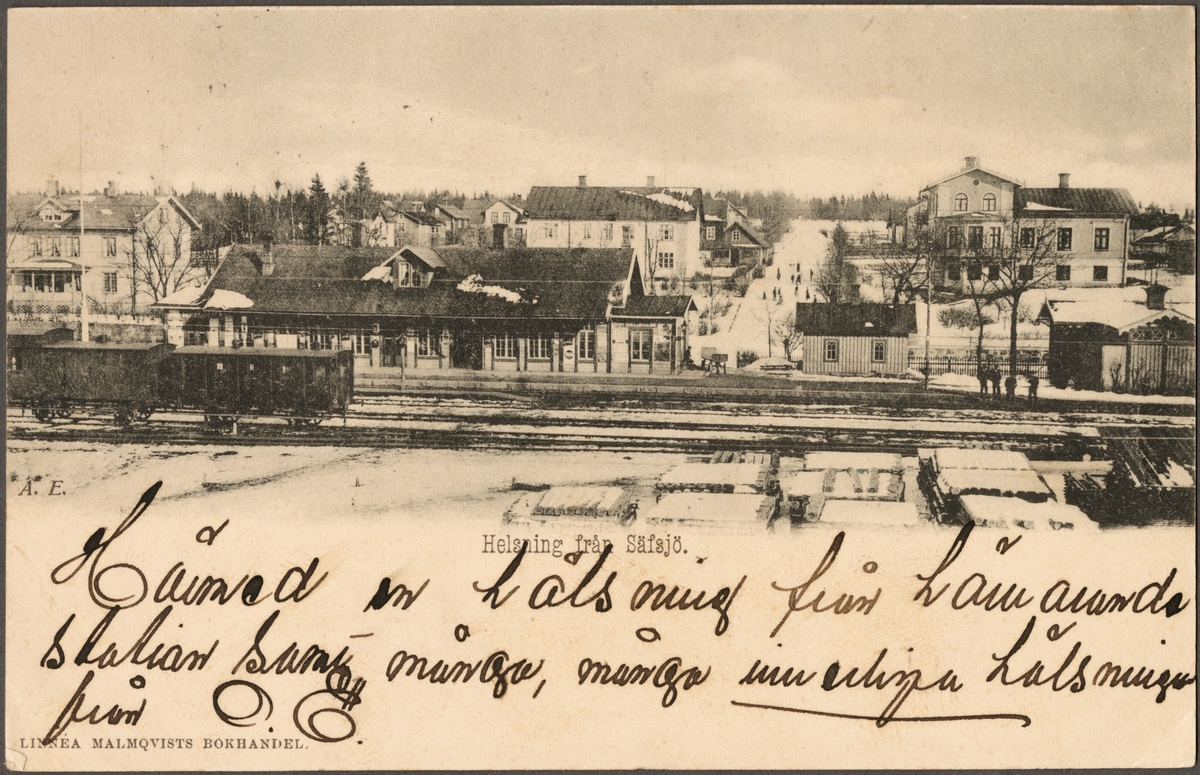 A. E.
Helsning från Säfsjö.
Härmed en hälsning från härvarande
station samt många, många innerliga hälsninga
från O. E.
LINNEA MALMQVISTS BOKHANDEL.